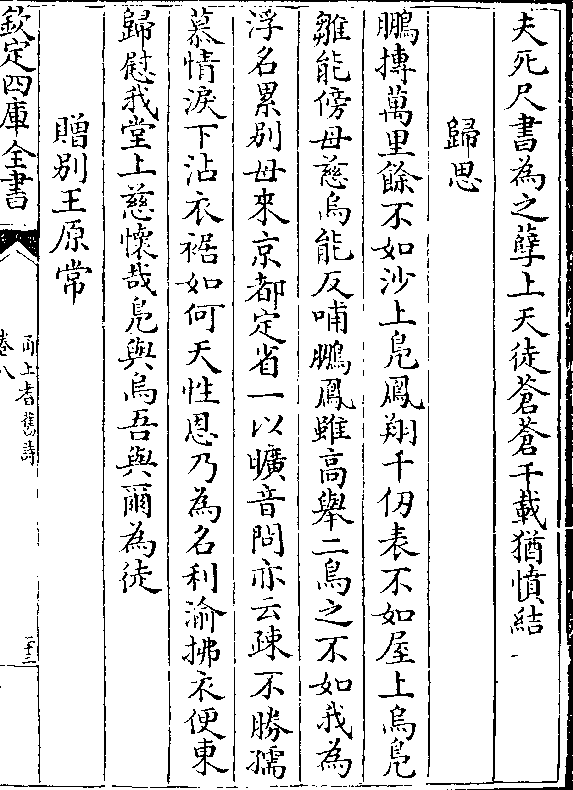 夫死尺書為之孽上天徒蒼蒼千載猶憤結
歸思
鵬摶萬里餘不如沙上鳬鳳翔千仭表不如屋上烏鳬
雛能傍母慈烏能反哺鵬鳳雖高舉二鳥之不如我為
浮名累别母來京都定省一以曠音問亦云疎不勝孺
慕情淚下沾衣裾如何天性恩乃為名利渝拂衣便東
歸慰我堂上慈懷哉鳬與烏吾與爾為徒
贈别王原常
欽定四庫全書
甬上耆舊詩
卷八
二十三